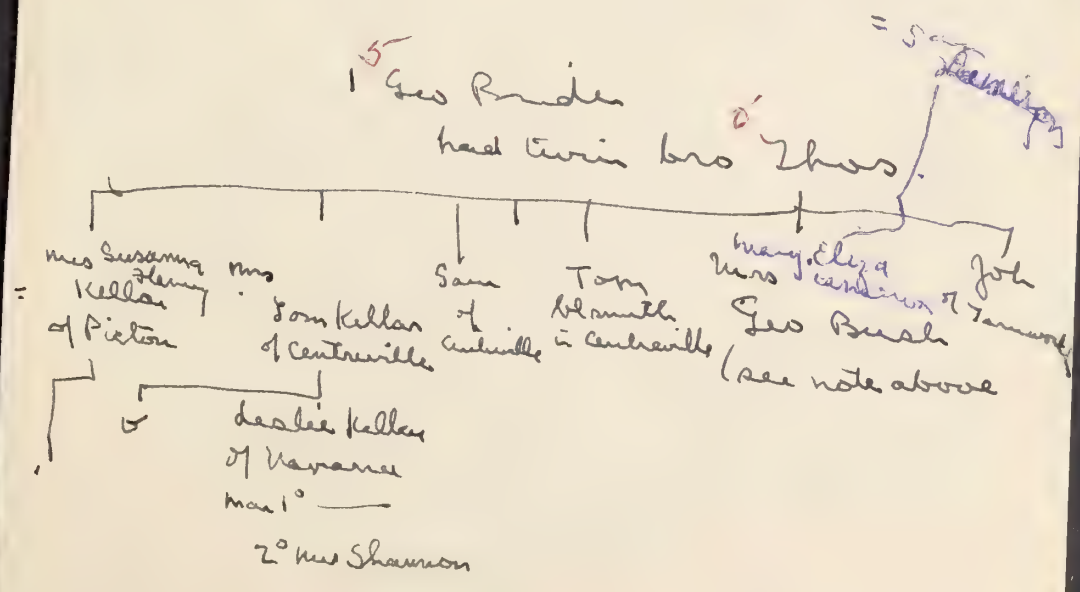 = 5
Jamieson
1 5 Geo Bruden
had twin bro Thos.
Mrs Susanna
Henry
Kellar
of Picton
Mrs
Tom Kellar
of Centreville
Sam
of
Centreville
Tom
blsmith
in Centreville
Mary Eliza
Mrs
Geo Bush
(see note above
Joh
of Tamworth
Leslie Kellar
of Napanee
mar 1° —
2° Mrs Shannon